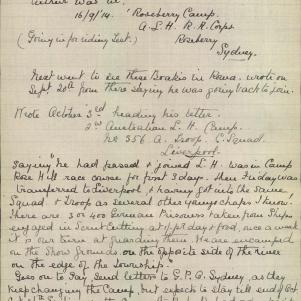 Arthur was in.
16/9/14. "Roseberry Camp.
A.L.H. R.R. Corps
(Going in for riding Test.) Roseberry
Sydney.
Next went to see there Boakes in Kewa. wrote on
Sept 20th from there saying he was going back to join.
Wrote October 3rd heading his letter.
2nd Australian L. H. Camp.
No 356 A. Troop. C. Squad.
Liverpool.
Saying "he had passed & joined L.H. was in Camp
Rose Hill race course for first 3 days. then Friday was
transferred to Liverpool & having got into the same
Squad & Troop as several other young chaps I know.
There are 3 or 400 German Prisoners taken from Ships
engaged in Scrub Cutting at 1/- per day & food, once a week
it is our turn at guarding them. We are encamped
on the Show Grounds on the opposite side of the river
on the edge of the township.
Goes on to say send letters to G.P.O. Sydney, as they
keep changing the Camp. but expects to stay till end of Oct